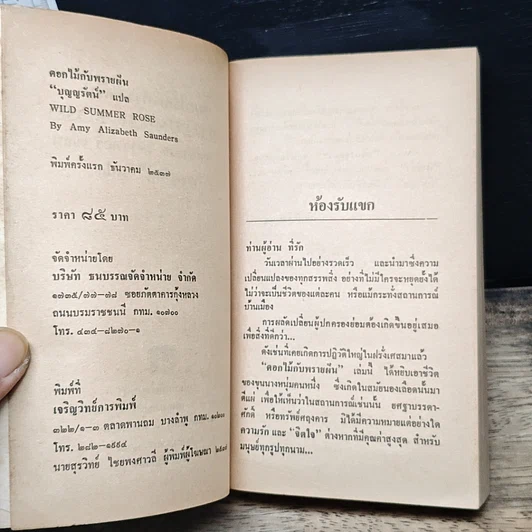 ดอกไม้กับพรายผืน
"บุญญรัตน์" แปล
WILD SUMMER ROSE
By Amy Alizabeth Saunders
พิมพ์ครั้งแรก ธันวาคม ๒๕๓๗
ราคา ๘๕ บาท
จัดจำหน่ายโดย
บริษัท ธนบรรณจัดจำหน่าย จำกัด
๑๗๓๕/๗๗-๗๘ ซอยภัตตาคารกุ้งหลวง
ถนนบรมราชชนนี กทม. ๑๐๗๐๐
โทร. ๔๓๔-๘๒๗๐-๑
พิมพ์ที่
เจริญวิทย์การพิมพ์
๓๒๒/๑-๓ ตลาดพานถม บางลำพู กทม. ๑๐๒๐๐
โทร. ๒๘๒-๑๙๙๔
นายสุรวิทย์ ไชยพงศาวลี ผู้พิมพ์ผู้โฆษณา ๒๕๓๗
ห้องรับแขก
ท่านผู้อ่าน ที่รัก
วันเวลาผ่านไปอย่างรวดเร็ว และนำมาซึ่งความ
เปลี่ยนแปลงของทุกสรรพสิ่ง อย่างที่ไม่มีใครจะหยุดยั้งได้
ไม่ว่าจะเป็นชีวิตของแต่ละคน หรือแม้กระทั่งสถานการณ์
บ้านเมือง
การผลัดเปลี่ยนผู้ปกครองย่อมต้องเกิดขึ้นอยู่เสมอ
เพื่อสิ่งที่ดีกว่า...
ดังเช่นที่เคยเกิดการปฏิวัติใหญ่ในฝรั่งเศสมาแล้ว
"ดอกไม้กับพรายผืน" เล่มนี้ ได้หยิบเอาชีวิต
ของขุนนางหนุ่มคนหนึ่ง ซึ่งเกิดในสมัยนองเลือดนั้นมา
ตีแผ่ เพื่อให้เห็นว่าในสถานการณ์เช่นนั้น ยศฐาบรรดา-
ศักดิ์ หรือทรัพย์ศฤงคาร มิได้มีความหมายแต่อย่างใด
ความรัก และ "จิตใจ" ต่างหากที่มีคุณค่าสูงสุด สำหรับ
มนุษย์ทุกรูปทุกนาม...